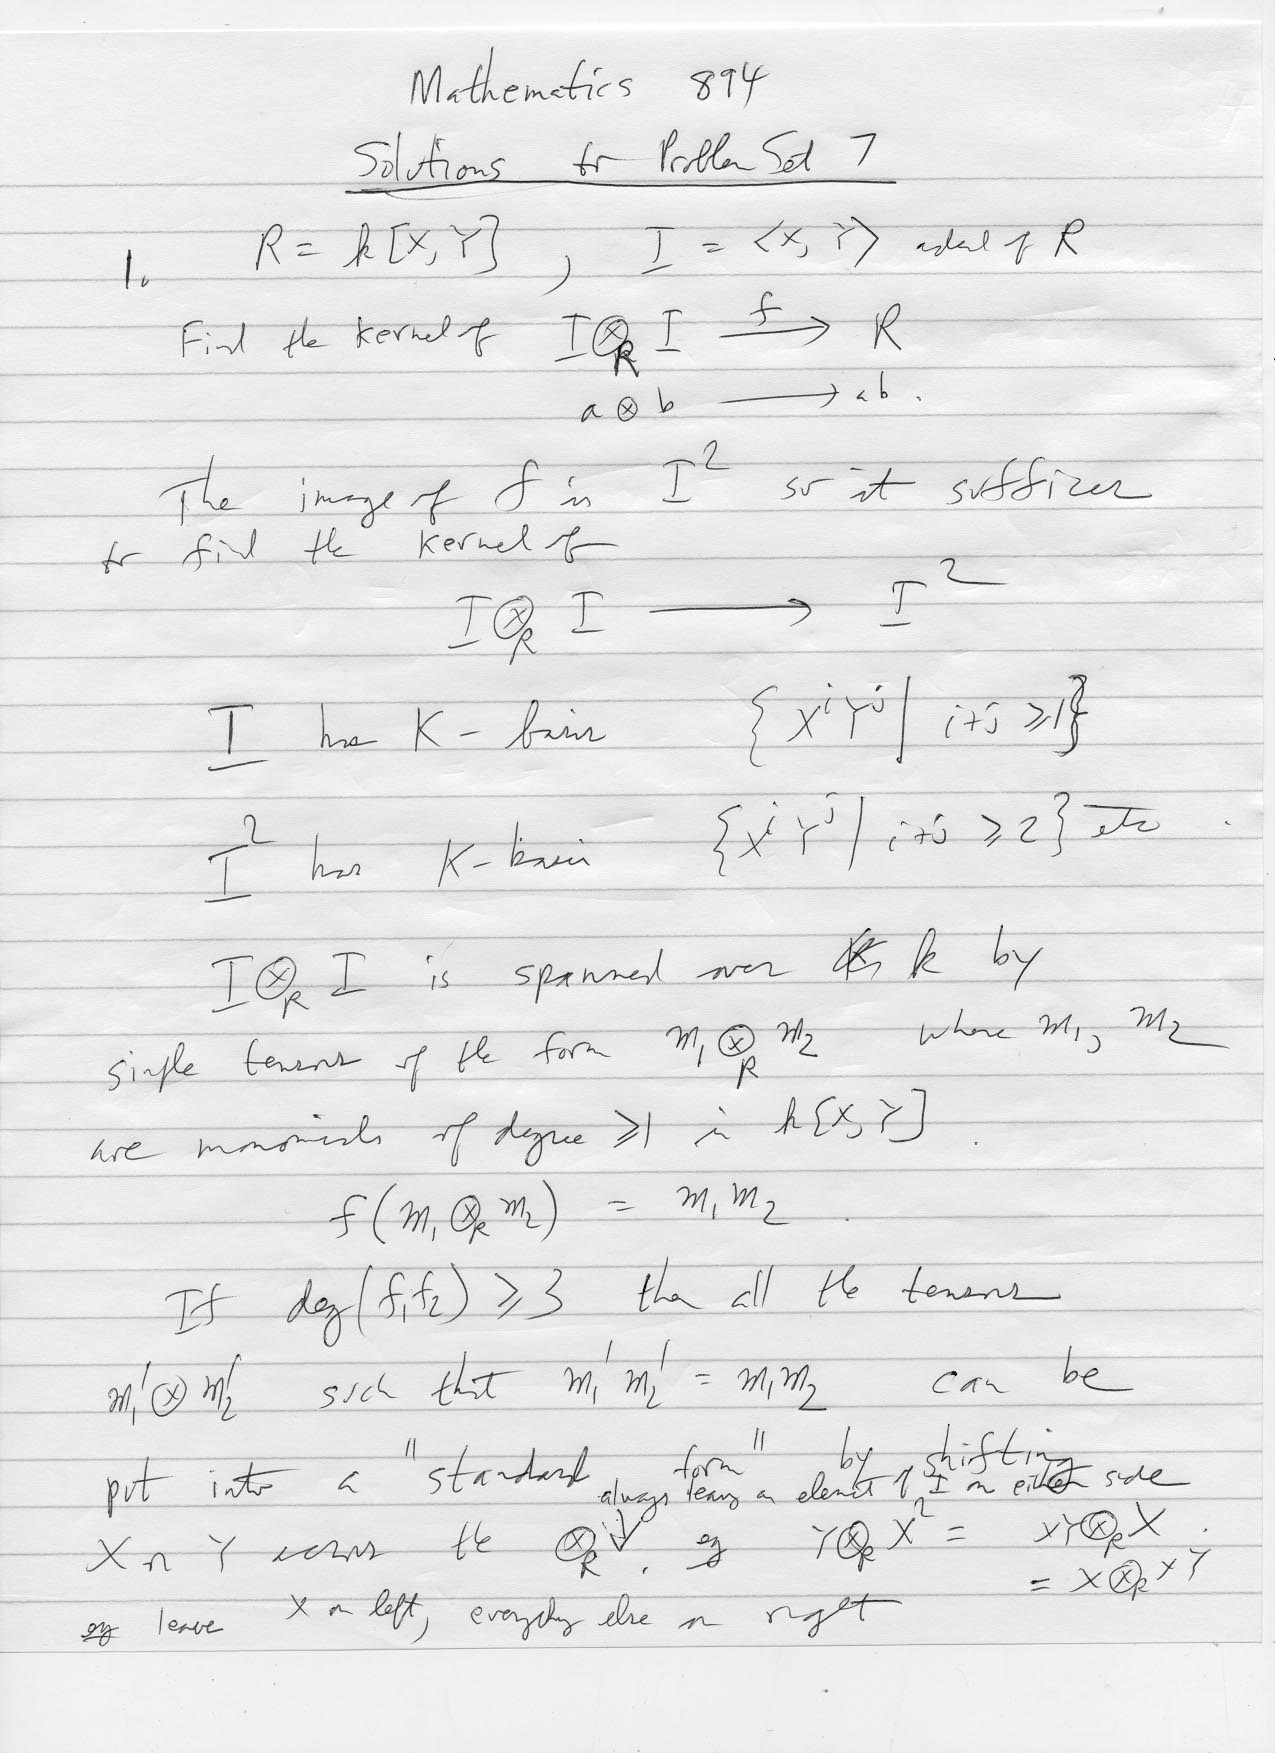 Mathematics 894
Solutions to Problem Set 7
1. R = k[X, Y], I = <X, Y> ideal of R
Find the kernel of I ⊗_R I —f→ R
a ⊗ b ⟶ ab.
The image of f is I² so it suffices
to find the kernel of
I ⊗_R I ⟶ I²
I has K-basis {X^i Y^j | i+j ≥ 1}
I² has K-basis {X^i Y^j | i+j ≥ 2} etc.
I ⊗_R I is spanned over k by
simple tensors of the form m₁ ⊗_R m₂ where m₁, m₂
are monomials of degree ≥1 in k[X, Y].
f(m₁ ⊗_R m₂) = m₁m₂.
If deg(f₁f₂) ≥ 3 then all the tensors
m₁' ⊗ m₂' such that m₁'m₂' = m₁m₂ can be
put into a "standard form" by shifting
always leaving an element of I on either side
X or Y across the ⊗_R. eg Y ⊗_R X² = XY ⊗_R X.
= X ⊗_R XY
eg leave X on left, everything else on right